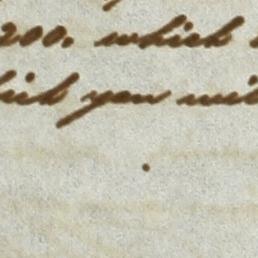 200. which
which you will